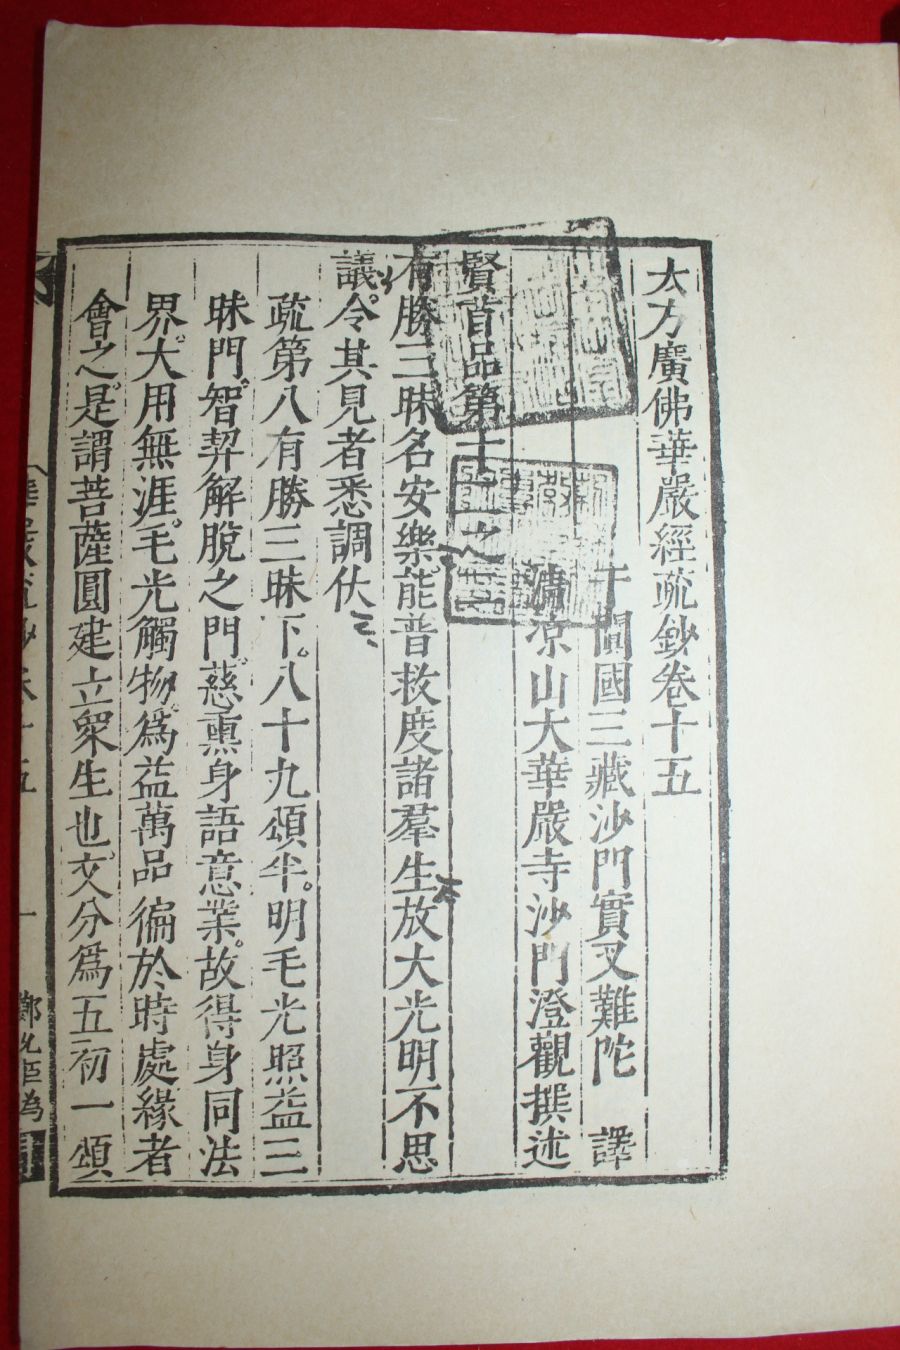 大方廣佛華嚴經疏鈔卷十五
于闐國三藏沙門實叉難陀 譯
清涼山大華嚴寺沙門澄觀撰述
賢首品第十二之
有勝三昧名安樂能普救度諸羣生放大光明不思
議令其見者悉調伏
疏第八有勝三昧下八十九頌半明毛光照益三
昧門智契解脫之門慈熏身語意業故得身同法
界大用無涯毛光觸物為益萬品徧於時處緣者
會之是謂菩薩圓建立眾生也文分為五初一頌